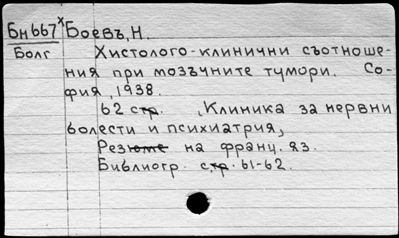 Бн667 х Боевъ, Н.
Болг Хистолого-клинични съотноше-
ния при мозъчните тумори. Со-
фия, 1938.
62 стр. „Клиника за нервни
болести и психиатрия„
Резюме на франц. яз.
Библиогр. стр. 61-62.